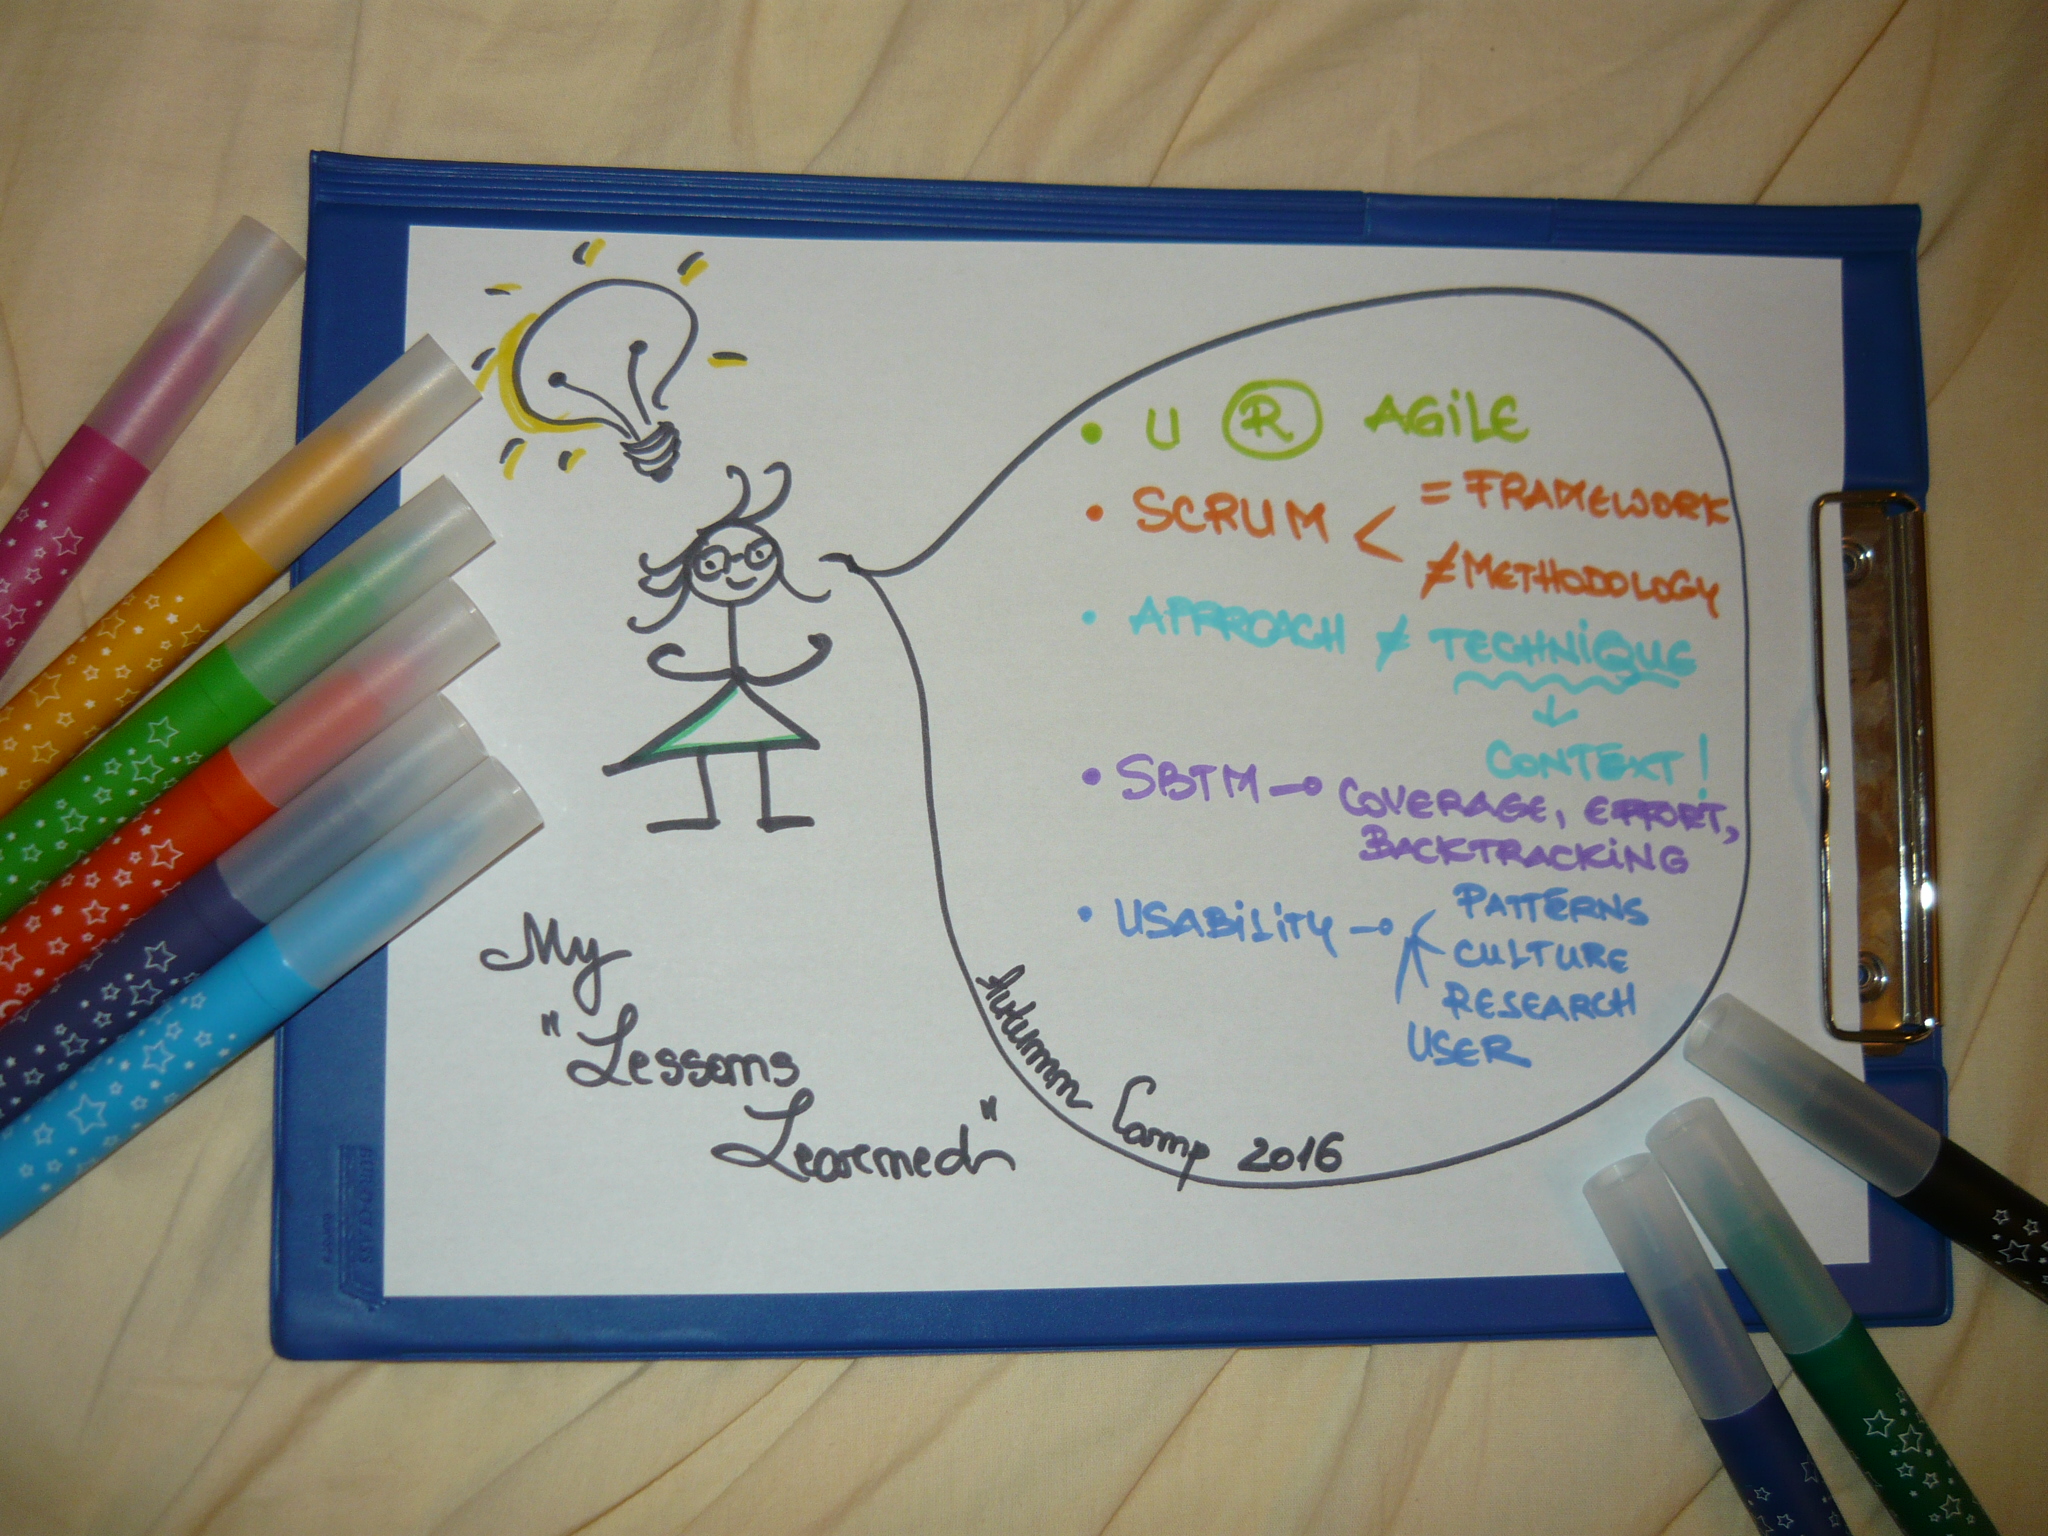 • U Ⓡ AGiLE
• SCRUM < = FRAMEWORK
≠ METHODOLOGY
• APPROACH ≠ TECHNiQUE
↓
CONTEXT!
• SBTM → COVERAGE, EFFORT,
BACKTRACKiNG
• USABiLiTY → PATTERNS
CULTURE
RESEARCH
USER
My
"Lessons
Learned"
Autumn Camp 2016